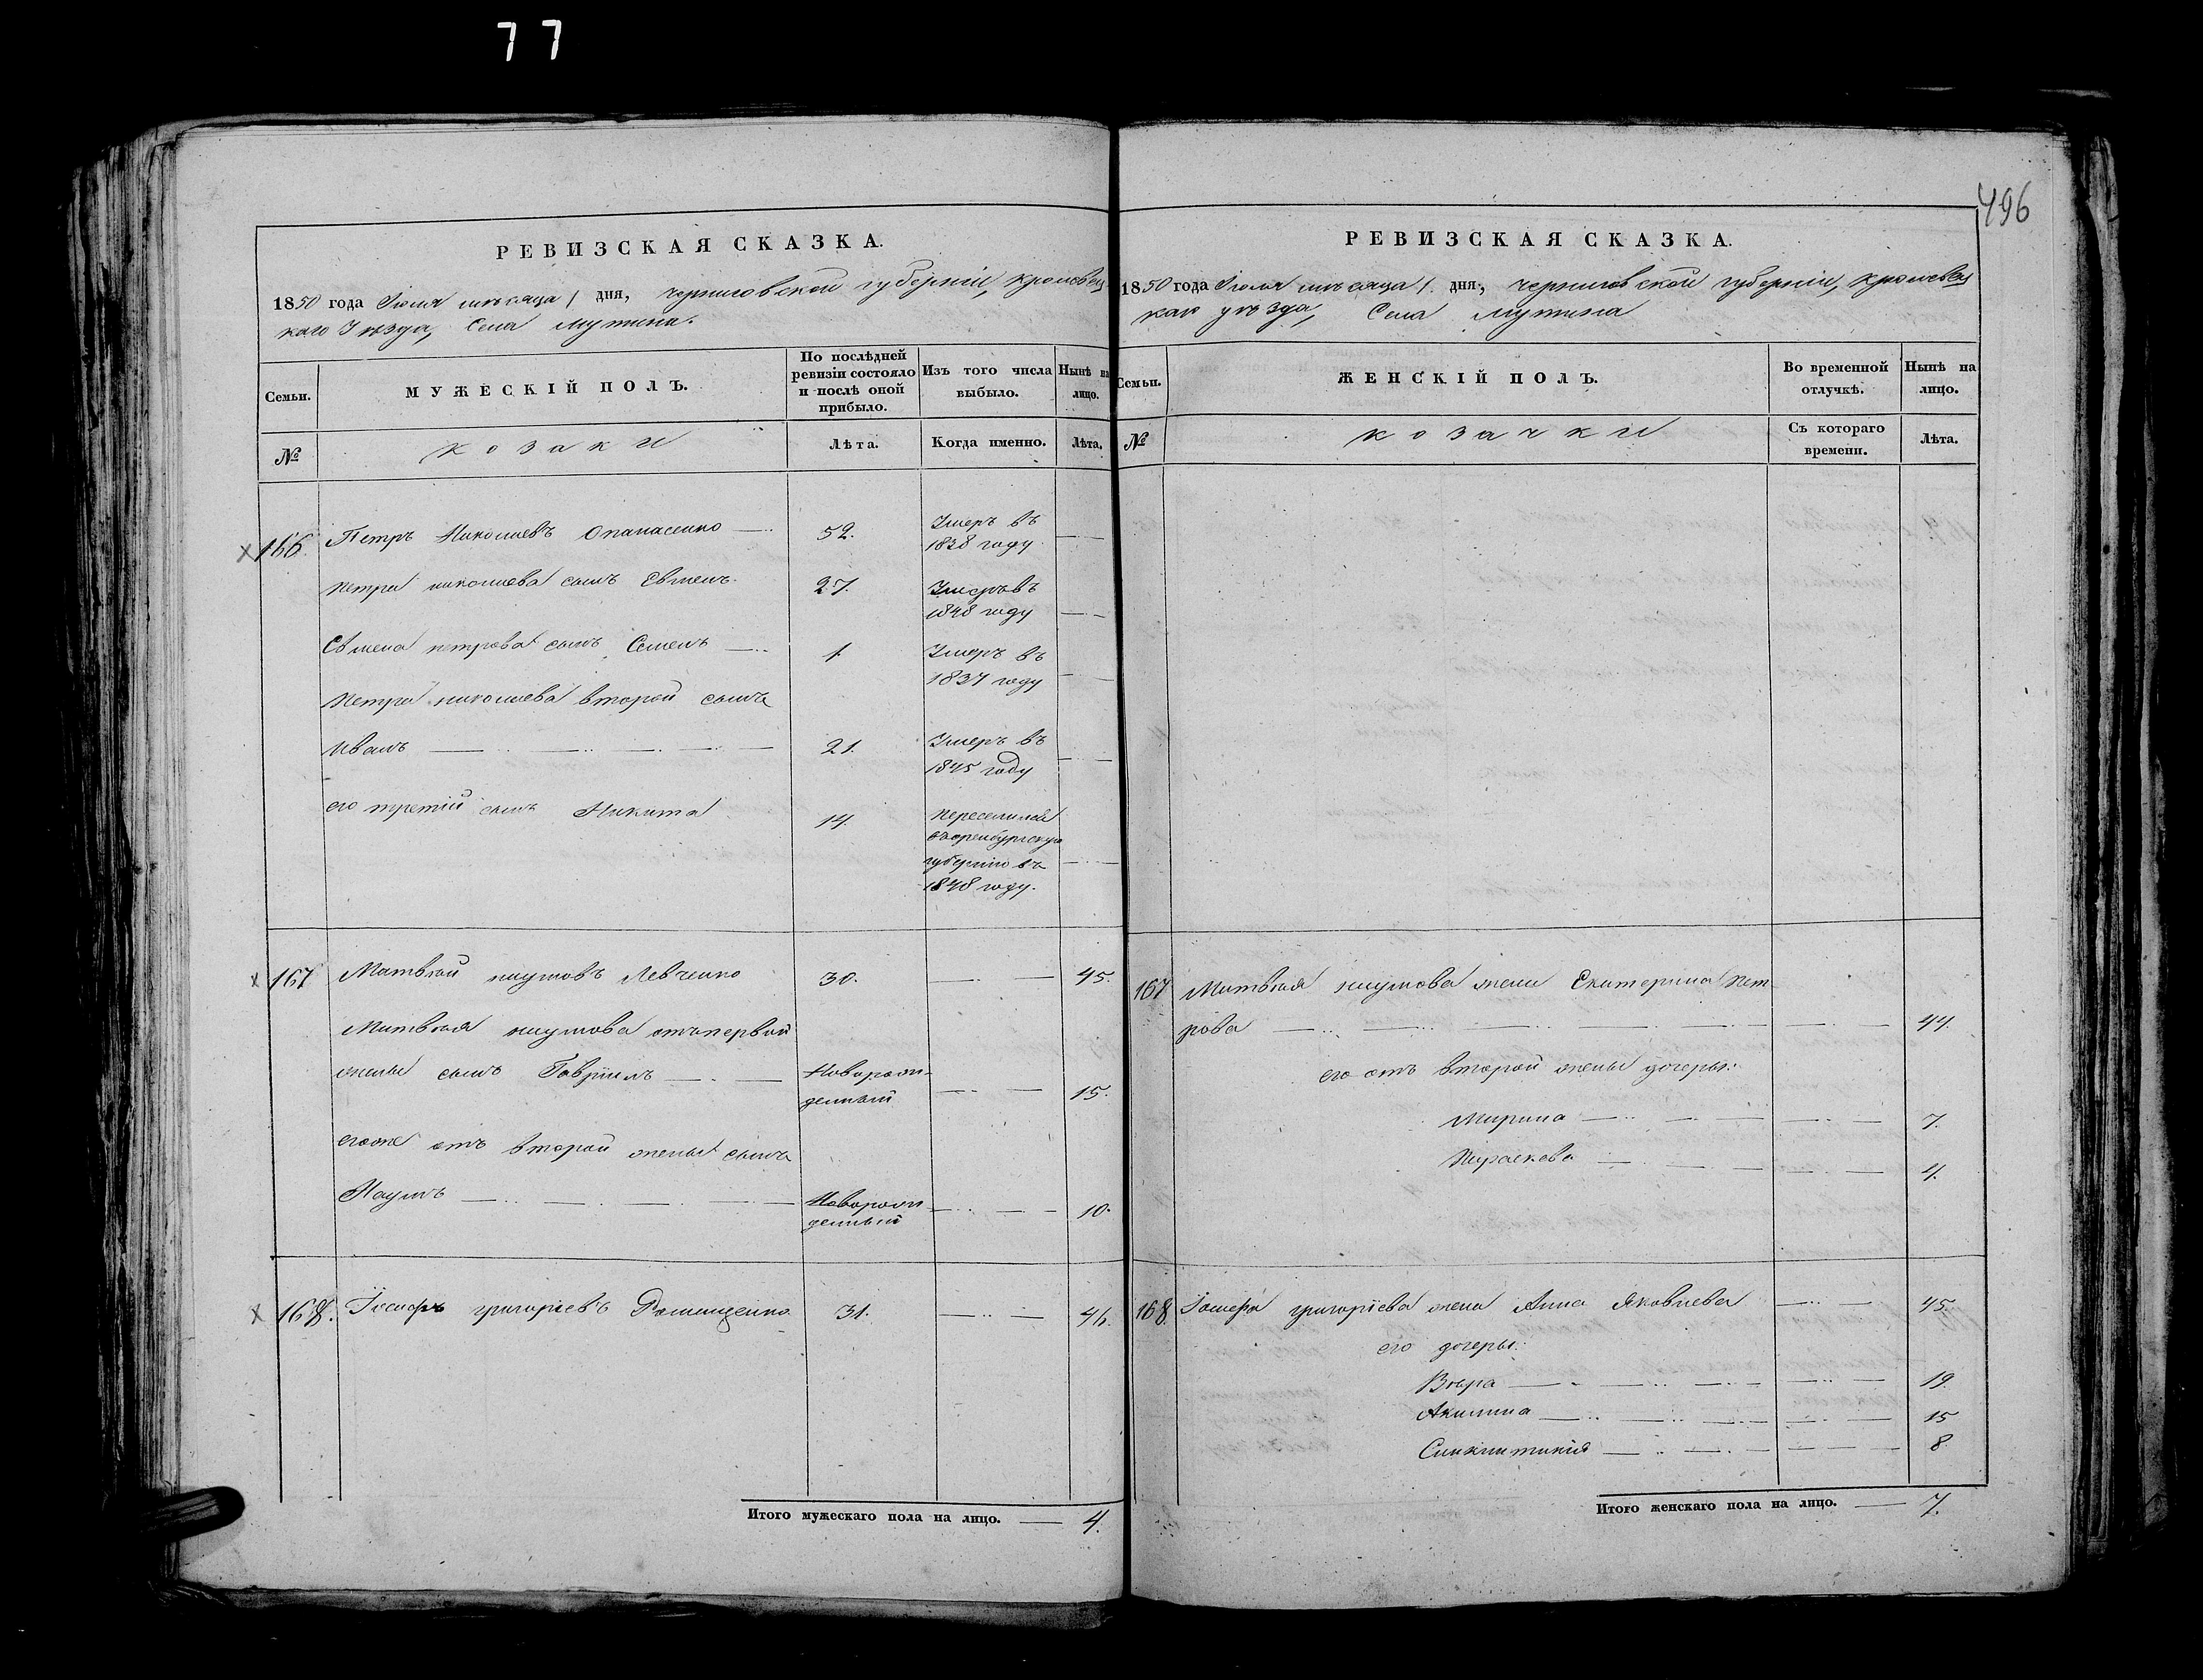 77
496
РЕВИЗСКАЯ СКАЗКА.
1850 года Іюля мѣсяца 1 дня, Черниговской губерніи, Кролевец-
каго Уѣзда, Села Мутина.
Семьи.
МУЖЕСКІЙ ПОЛЪ.
По послѣдней
ревизіи состояло
и послѣ оной
прибыло.
Изъ того числа
выбыло.
Нынѣ на
лицо.
№
козаки
Лѣта.
Когда именно.
Лѣта.
166. Петръ Николаевъ Опанасенко — 52. Умеръ въ
1838 году —
Петра николаева сынъ Евменъ. 27. Умеръ въ
1848 году —
Евмена петрова сынъ Семенъ — 1. Умеръ въ
1837 году —
Петра николаева второй сынъ
Иванъ — 21. Умеръ въ
1845 году —
его третій сынъ Никита 14. Переселился
въ оренбургскую
губернію въ —
1848 году.
167 Матвѣй наумовъ Левченко 30. — 45.
Матвѣя наумова отъ первой
жены сынъ Гавріилъ — Новорож-
денный — 15.
егоже отъ второй жены сынъ
Наумъ — Новорож-
денный — 10.
168. Іосифъ григоріевъ 31. — 46.
Итого мужескаго пола на лицо. — 4.
РЕВИЗСКАЯ СКАЗКА.
1850 года Іюля мѣсяца 1. дня, черниговской губерніи, кролевец
каго уѣзда, Села Мутина
Семьи.
ЖЕНСКІЙ ПОЛЪ.
Во временной
отлучкѣ.
Нынѣ на
лицо.
№
козачки
Съ котораго
времени.
Лѣта.
167 Матвѣя наумова жена Екатерина Пет-
рова — 44.
его отъ второй жены дочеры:
Марина — 7.
Параскева — 4.
168. Іосифа григоріева жена Анна Яковлева — 45.
его дочеры:
Вѣра — 19.
Акилина — 15
Синклитикія — 8.
Итого женскаго пола на лицо. — 7.